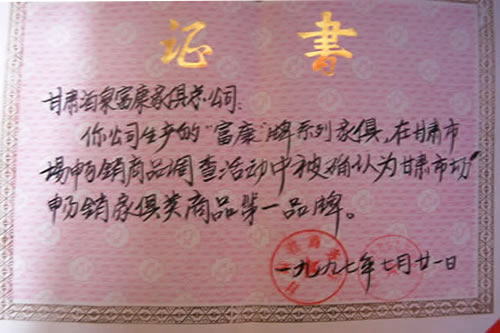 证书
甘肃酒泉富康家俱总公司:
你公司生产的"富康"牌系列家俱,在甘肃市
场畅销商品调查活动中被确认为甘肃市场
畅销家俱类商品第一品牌。
一九九七年七月廿一日